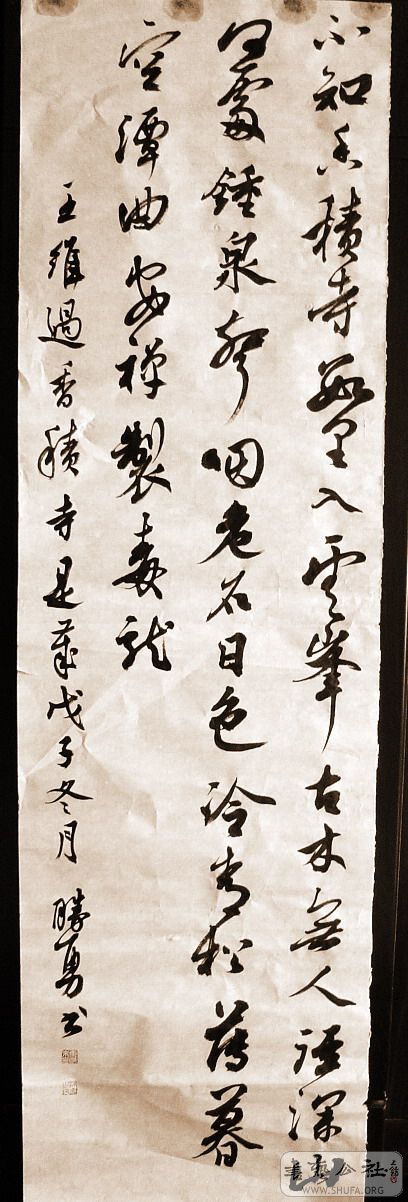 不知香積寺數里入雲峯古木無人徑深山
何處鍾泉聲咽危石日色冷青松薄暮
空潭曲安禪製毒龍
王維過香積寺是歲戊子冬月 勝勇書
書藝公社
WWW.SHUFA.ORG